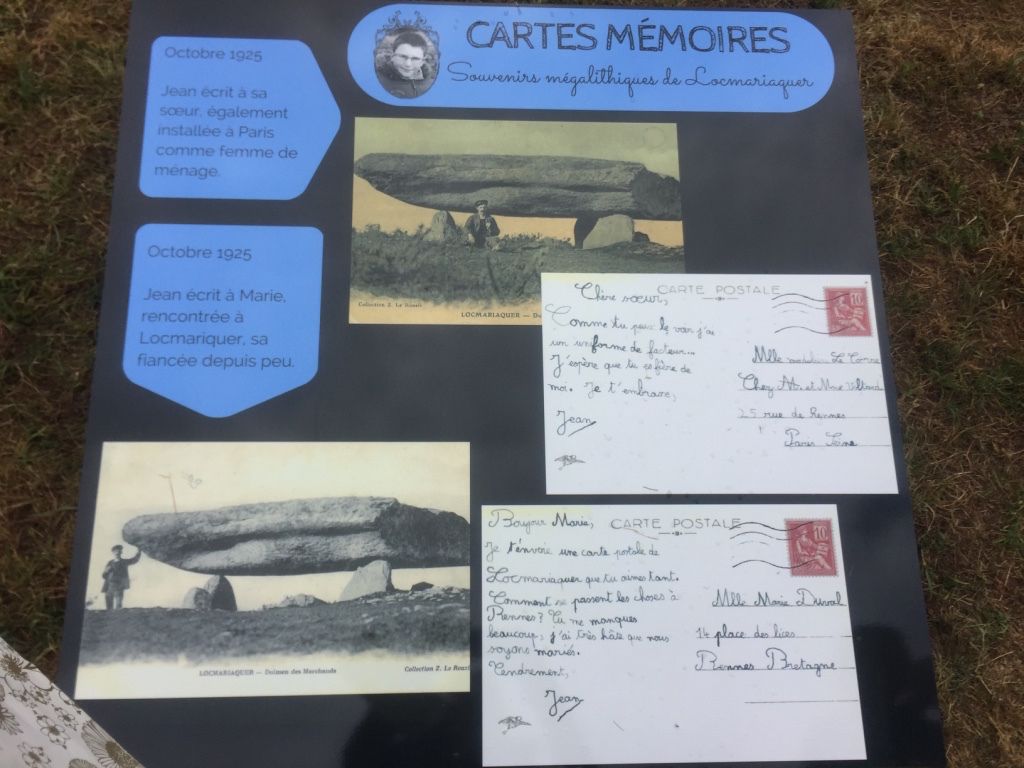 CARTES MÉMOIRES
Souvenirs mégalithiques de Locmariaquer
Octobre 1925
Jean écrit à sa
sœur, également
installée à Paris
comme femme de
ménage.
Octobre 1925
Jean écrit à Marie,
rencontrée à
Locmariquer, sa
fiancée depuis peu.
Collection Z. Le Rouzic
LOCMARIAQUER —
CARTE POSTALE
10
Chère sœur,
Comme tu peux le voir j'ai
un uniforme de facteur...
J'espère que tu es fière de
moi. Je t'embrasse,
Jean
Mlle
Chez M. et Mme
25 rue de Rennes
Paris
LOCMARIAQUER — Dolmen des Marchands
Collection Z. Le Rouzi
CARTE POSTALE
10
Bonjour Marie,
Je t'envoie une carte postale de
Locmariaquer que tu aimes tant.
Comment se passent les choses à
Rennes? Tu me manques
beaucoup, j'ai très hâte que nous
soyons mariés.
Tendrement,
Jean
Mlle Marie Durval
14 place des lices
Rennes Bretagne